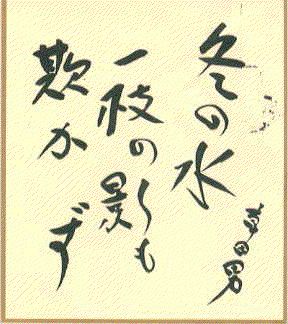 冬の水
一枝の影も
欺かず
草田男